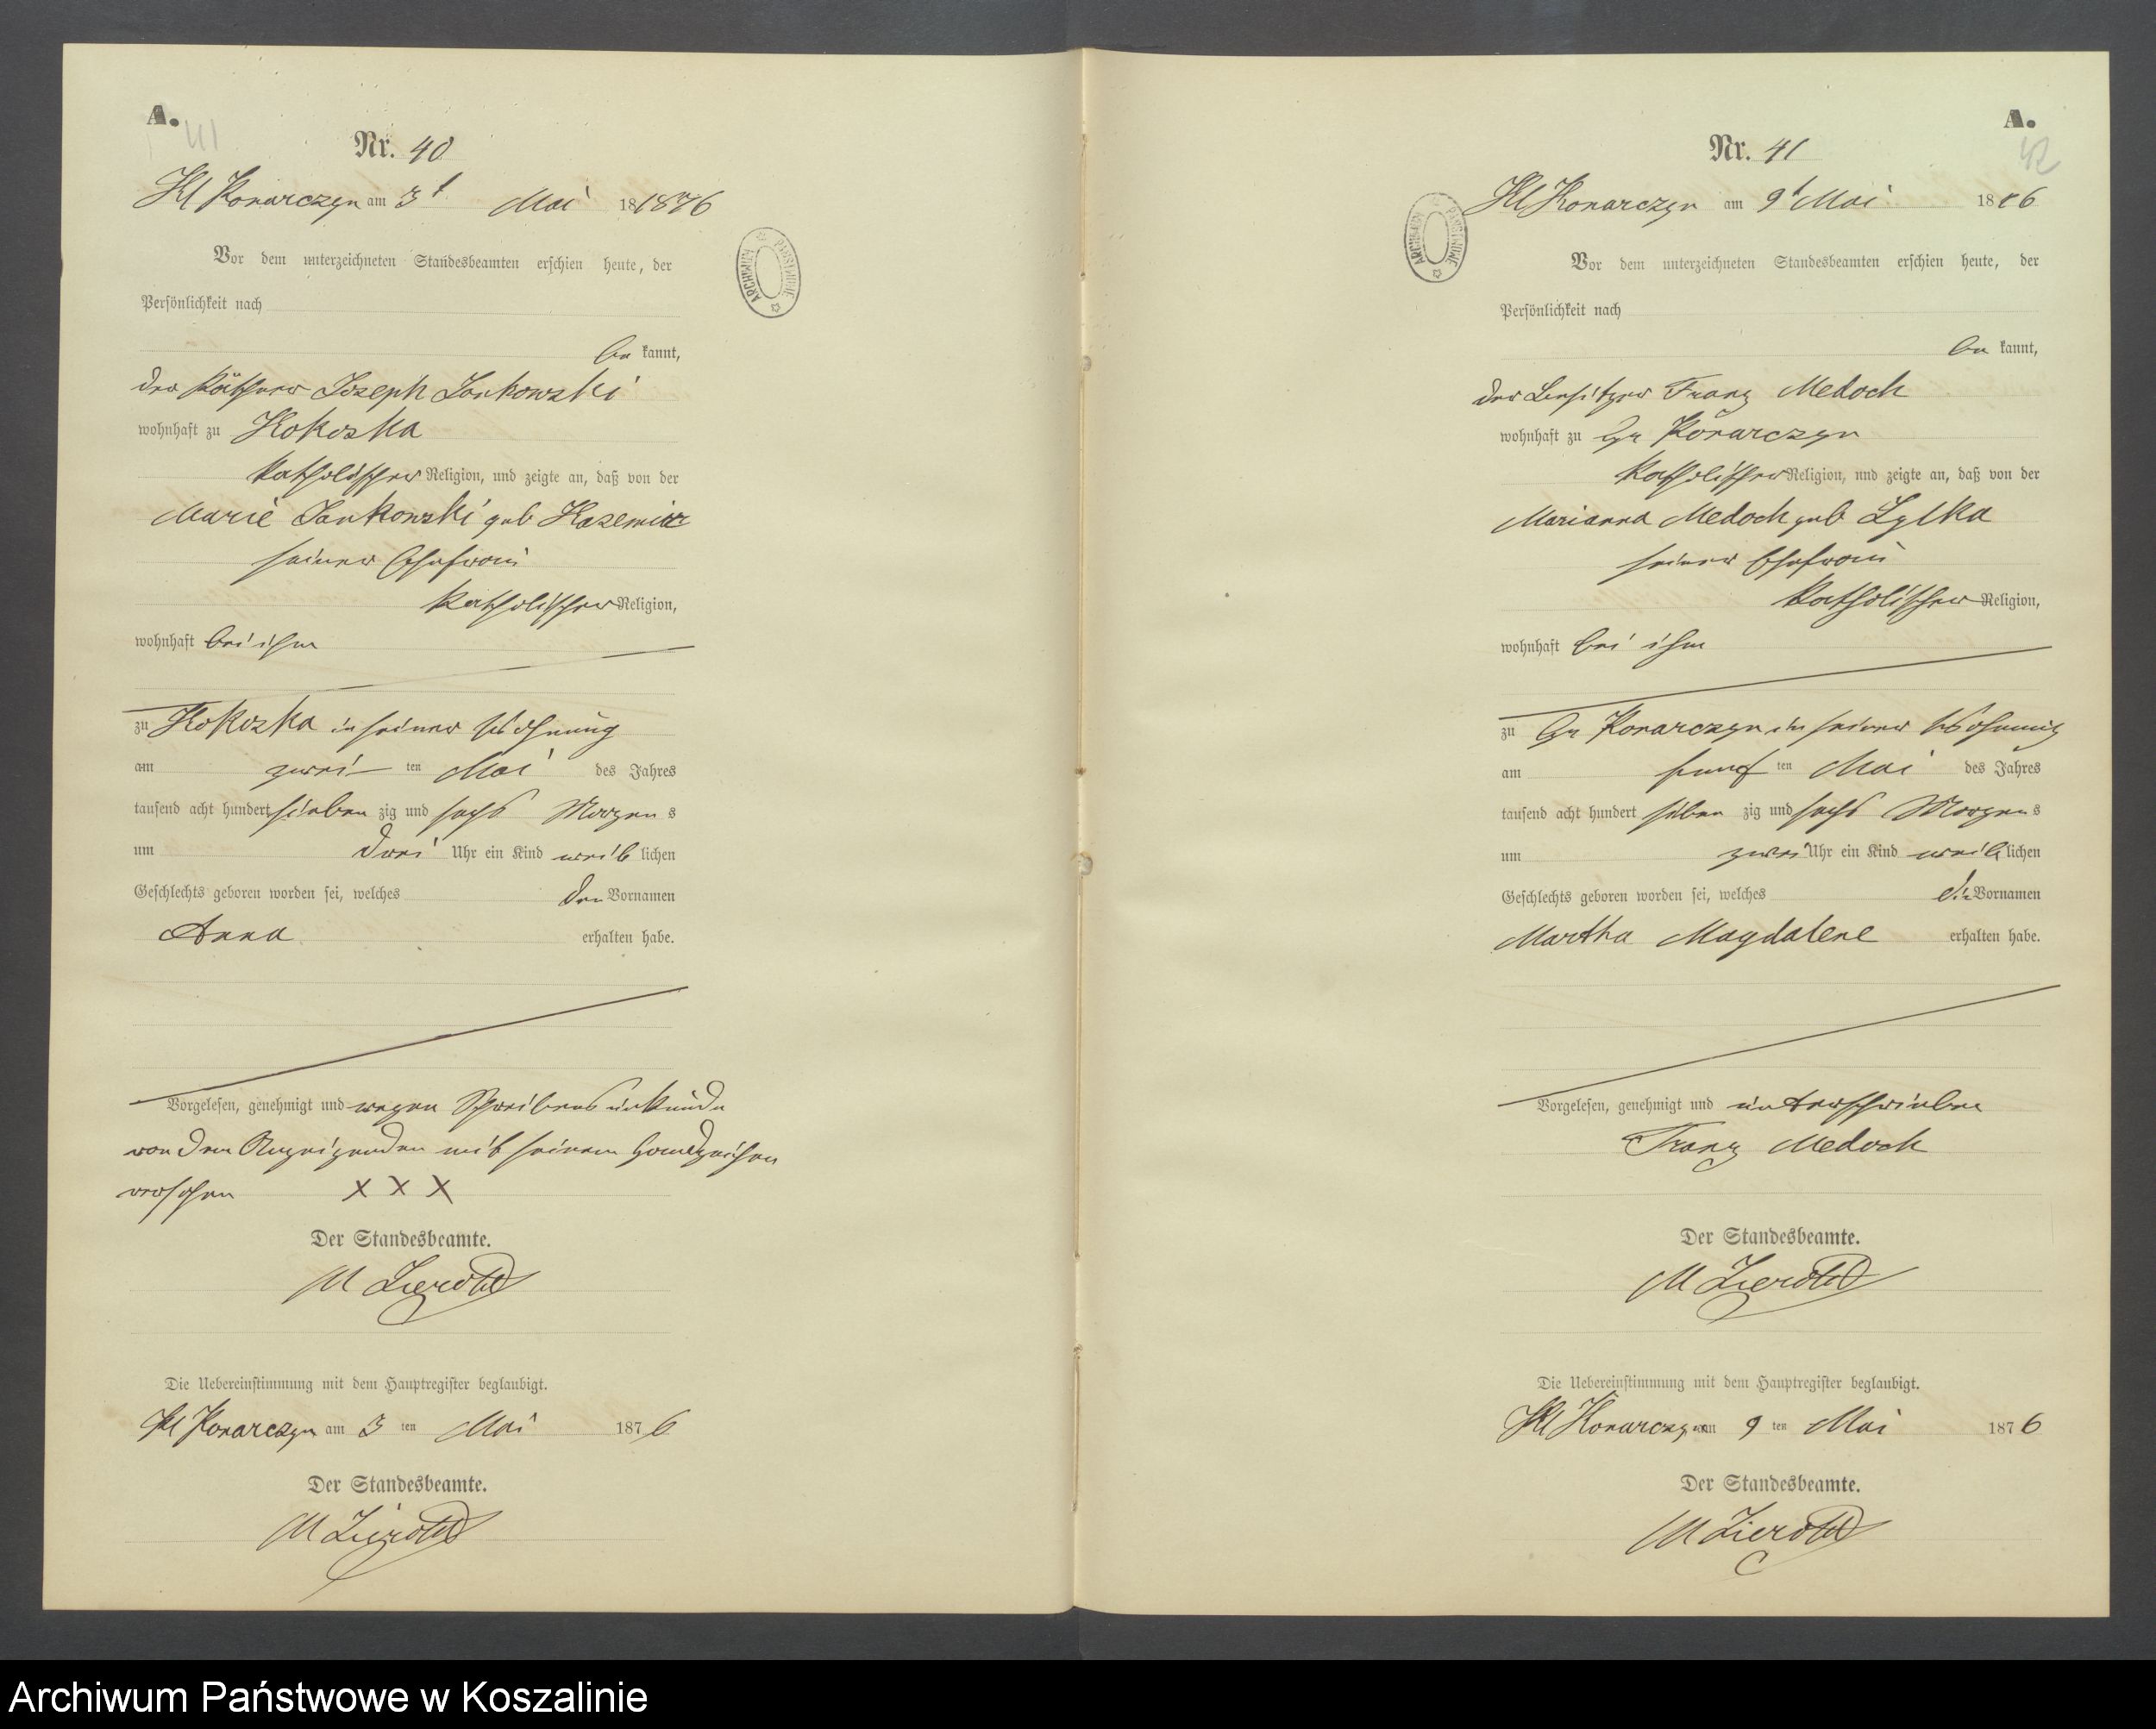 A.
41
Nr. 40
Kl Konarczyn am 3t Mai 181876
Vor dem unterzeichneten Standesbeamten erschien heute, der
Persönlichkeit nach
be kannt,
der Käthner Joseph Jankowski
wohnhaft zu Kokoska
katholischer Religion, und zeigte an, daß von der
Marie Jankowski geb
seiner Ehefrau
katholischer Religion,
wohnhaft bei ihm
zu Kokoska in seiner Wohnung
am zwei ten Mai des Jahres
tausend acht hundert sieben zig und sechs Morgens
um drei Uhr ein Kind weib lichen
Geschlechts geboren worden sei, welches den Vornamen
Anna erhalten habe.
Vorgelesen, genehmigt und wegen Schreibensunkunde
von dem Anzeigenden mit seinem Handzeichen
versehen X X X
Der Standesbeamte.
M
Die Uebereinstimmung mit dem Hauptregister beglaubigt.
Kl Konarczyn am 3 ten Mai 1876
Der Standesbeamte.
M
ARCHIWUM PAŃSTWOWE
A.
42
Nr. 41
Kl Konarczyn am 9t Mai 1876
Vor dem unterzeichneten Standesbeamten erschien heute, der
Persönlichkeit nach
be kannt,
der Besitzer Franz Medoch
wohnhaft zu Gr Konarczyn
katholischer Religion, und zeigte an, daß von der
Marianna Medoch geb Lylka
seiner Ehefrau
katholischer Religion,
wohnhaft bei ihm
zu Gr Konarczyn in seiner Wohnung
am fünf ten Mai des Jahres
tausend acht hundert sieben zig und sechs Morgens
um zwei Uhr ein Kind weib lichen
Geschlechts geboren worden sei, welches die Vornamen
Martha Magdalene erhalten habe.
Vorgelesen, genehmigt und unterschrieben
Franz Medoch
Der Standesbeamte.
M
Die Uebereinstimmung mit dem Hauptregister beglaubigt.
Kl Konarczyn am 9 ten Mai 1876
Der Standesbeamte.
M
ARCHIWUM PAŃSTWOWE
Archiwum Państwowe w Koszalinie